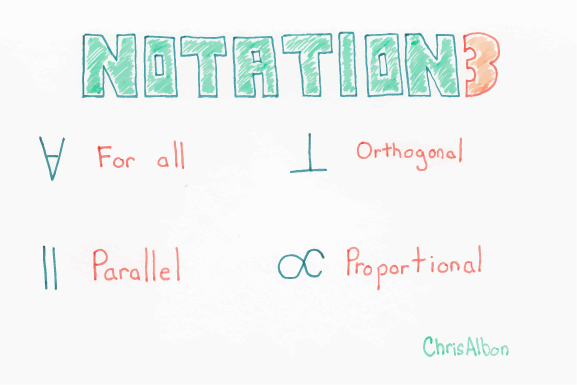 NOTATION 3
∀ For all ⊥ Orthogonal
∥ Parallel ∝ Proportional
ChrisAlbon